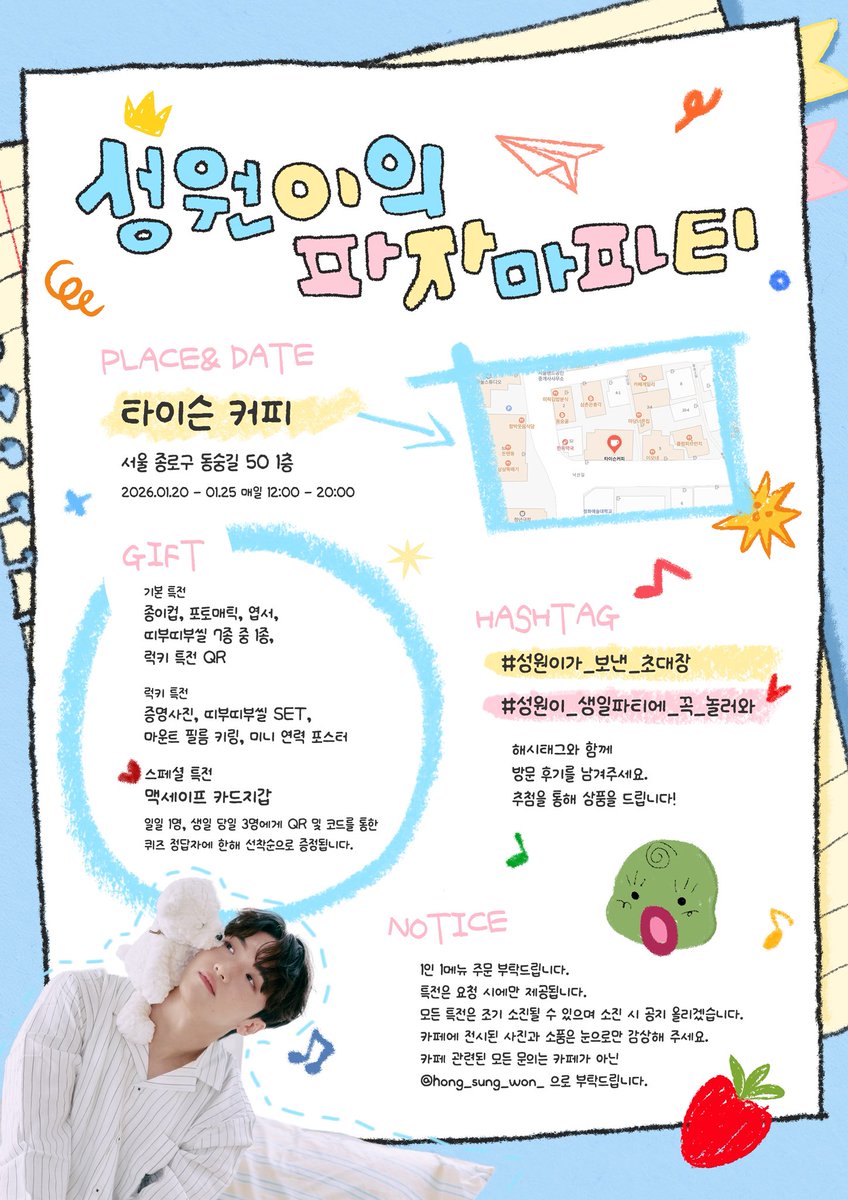 성원이의
파자마파티
PLACE& DATE
타이슨 커피
서울 종로구 동숭길 50 1층
2026.01.20 - 01.25 매일 12:00 - 20:00
카페게일리
타이슨커피
정화예술대학교
GIFT
기본 특전
종이컵, 포토매틱, 엽서,
띠부띠부씰 7종 중 1종,
럭키 특전 QR
럭키 특전
증명사진, 띠부띠부씰 SET,
마운트 필름 키링, 미니 연력 포스터
스페셜 특전
맥세이프 카드지갑
일일 1명, 생일 당일 3명에게 QR 및 코드를 통한
퀴즈 정답자에 한해 선착순으로 증정됩니다.
HASHTAG
#성원이가_보낸_초대장
#성원이_생일파티에_꼭_놀러와
해시태그와 함께
방문 후기를 남겨주세요.
추첨을 통해 상품을 드립니다!
NOTICE
1인 1메뉴 주문 부탁드립니다.
특전은 요청 시에만 제공됩니다.
모든 특전은 조기 소진될 수 있으며 소진 시 공지 올리겠습니다.
카페에 전시된 사진과 소품은 눈으로만 감상해 주세요.
카페 관련된 모든 문의는 카페가 아닌
@hong_sung_won_ 으로 부탁드립니다.